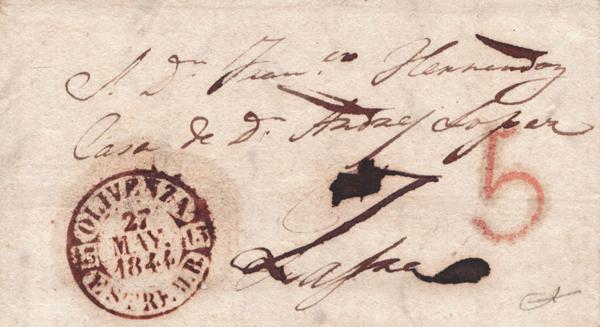 S. Dn. Fran.co Hernandez
Casa de Dn. Andres Lopez
Zafra
5
OLIVENZA
27
MAY.
1844
ESTREM.B.